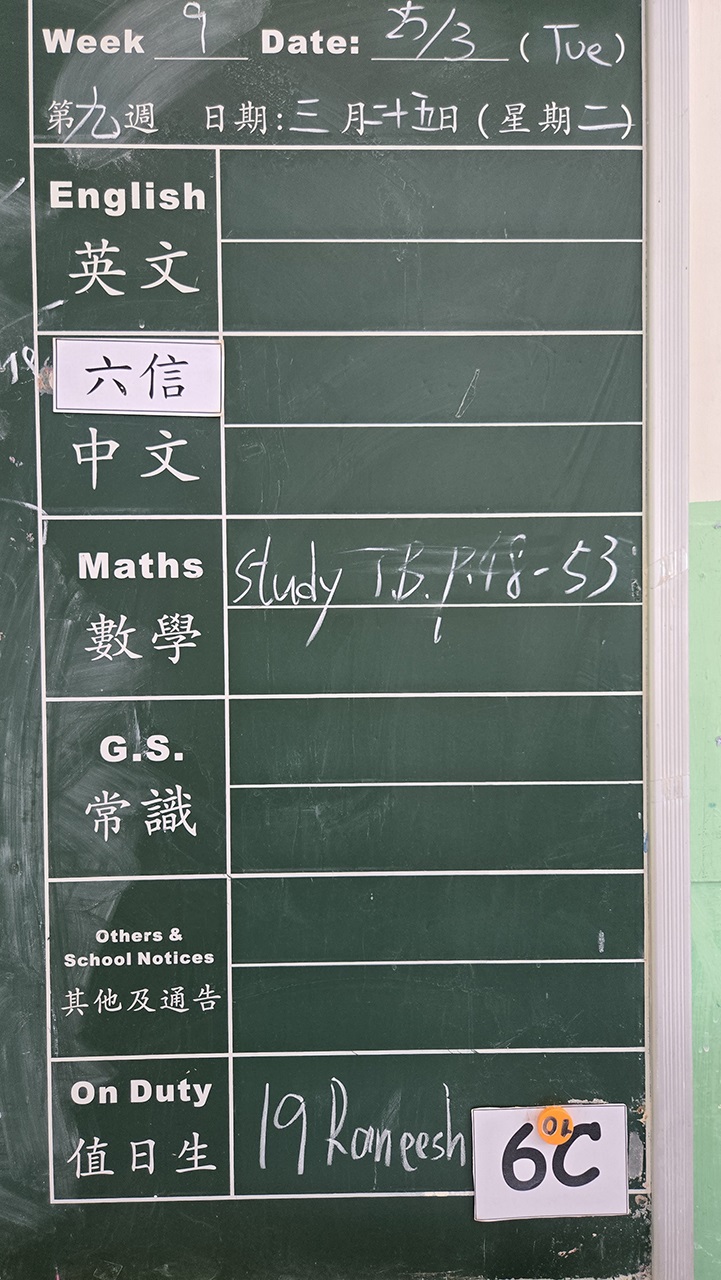 Week 9 Date: 25/3 (Tue)
第九週 日期:三月二十五日(星期二)
English
英文
六信
中文
Maths
Study T.B. P.48-53
數學
G.S.
常識
Others &
School Notices
其他及通告
On Duty
19 Raneesh
值日生
6C